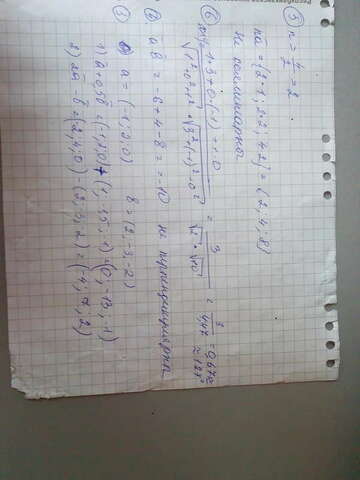 ③ n = 4/2 = 2
na̅ = (2·1; 2·2; 4·2) = (2; 4; 8)
не коллинарны
⑥ 1·3 + 0·(-1) + 1·0 / √1²+0²+1² · √3²+(-1)²+0² = 3 / √2 · √10 = 3 / 4,47 = 0,67
≈ 1,27
② a̅ b̅ = -6 + 4 - 8 = -10 не перпендикулярна
① a = (-1; 2; 0) b = (2; -3; -2)
1) a + 0,5b = (-1; 2; 0) + (1; -1,5; -1) = (0; ; -1)
2) 2a̅ - b̅ = (-2; 4; 0) - (2; -3; -2) = (-4; 7; 2)